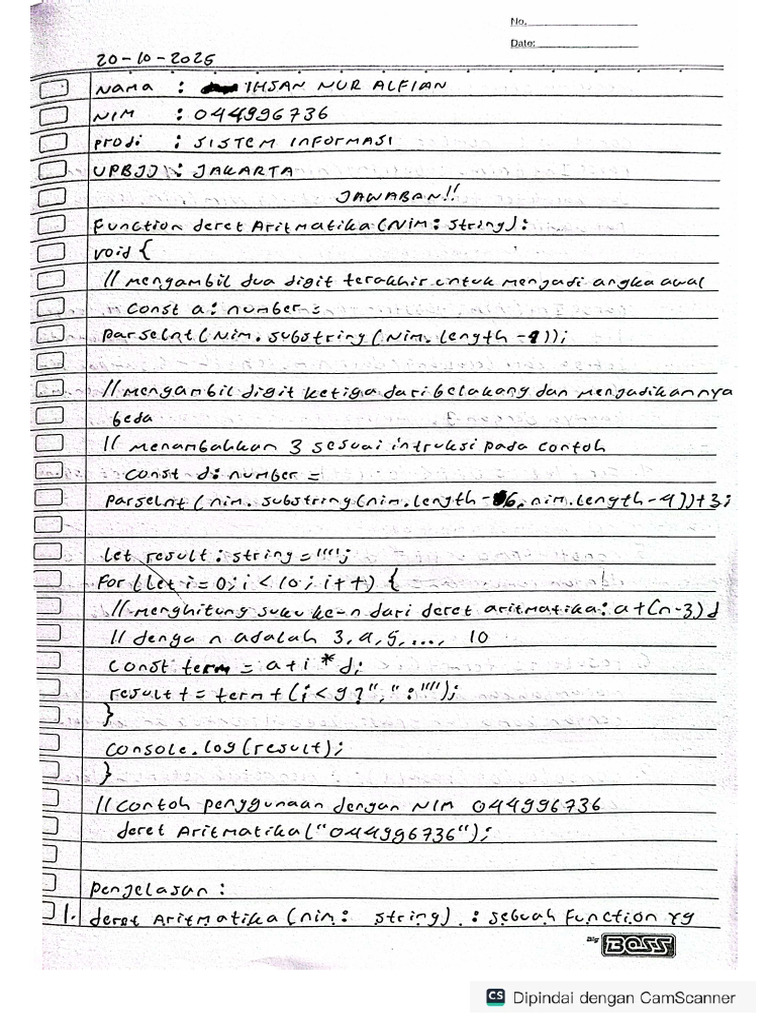 No.
Date:
20-10-2025
Nama : IHSAN NUR ALFIAN
NIM : 044996736
Prodi : SISTEM INFORMASI
UPBJJ : JAKARTA
JAWABAN!!
Function deret Aritmatika(Nim: string):
void {
// mengambil dua digit terakhir untuk menjadi angka awal
Const a: number =
ParseInt(Nim.substring(Nim.length-4));
// mengambil digit ketiga dari belakang dan menjadikannya
beda
// menambahkan 3 sesuai intruksi pada contoh
Const d: number =
ParseInt(nim.substring(nim.length-6, nim.length-4))+3;
let result: string = "";
For (let i=0; i<10; i++) {
// menghitung suku ke-n dari deret aritmatika: a+(n-3)d
// denga n adalah 3, 4, 5, ..., 10
Const term = a+i*d;
result += term + (i<9?",":"");
}
Console.log(result);
}
// Contoh penggunaan dengan NIM 044996736
deret Aritmatika("044996736");
Penjelasan :
1. deret Aritmatika(nim: string). : sebuah Function yg
Big BOSS
CS Dipindai dengan CamScanner